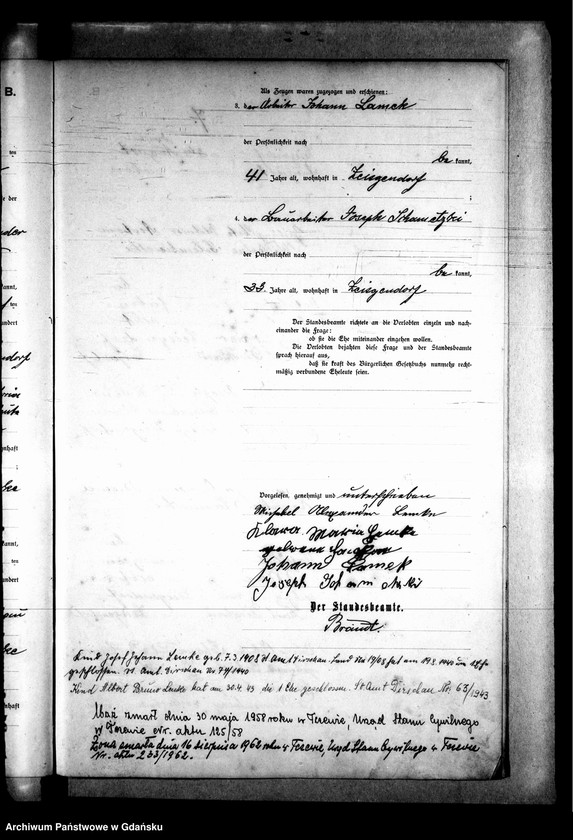 B.
Als Zeugen waren zugezogen und erschienen:
3. der Arbeiter Johann Lamek
der Persönlichkeit nach
be kannt,
41 Jahre alt, wohnhaft in Zeisgendorf
;
4. der Bauarbeiter Joseph
der Persönlichkeit nach
be kannt,
33 Jahre alt, wohnhaft in Zeisgendorf
Der Standesbeamte richtete an die Verlobten einzeln und nach-
einander die Frage:
ob sie die Ehe miteinander eingehen wollen.
Die Verlobten bejahten diese Frage und der Standesbeamte
sprach hierauf aus,
daß sie kraft des Bürgerlichen Gesetzbuchs nunmehr recht-
mäßig verbundene Eheleute seien.
Vorgelesen, genehmigt und unterschrieben
Michael Alexander Lemke
Klara Maria Lemke
geborene
Johann Lamek
Joseph
Der Standesbeamte.
Brandt.
Kind Josef Johann Lemke geb. 7.3.1908 St. Amt Dirschau-Land No 19/08 hat am 1940 um Ehe
geschlossen. St. Amt Dirschau No 74/1940
Kind Albert Bruno Lemke hat am 30.4.43 die 1. Ehe geschlossen. St. Amt Dirschau Nr. 63/1943
Mąż zmarł dnia 30 maja 1958 roku w Tczewie, Urząd Stanu Cywilnego
w Tczewie Nr. aktu 125/58
Żona zmarła dnia 16 sierpnia 1962 roku w Tczewie, Urząd Stanu Cywilnego w Tczewie
Nr. aktu 233/1962.
Archiwum Państwowe w Gdańsku